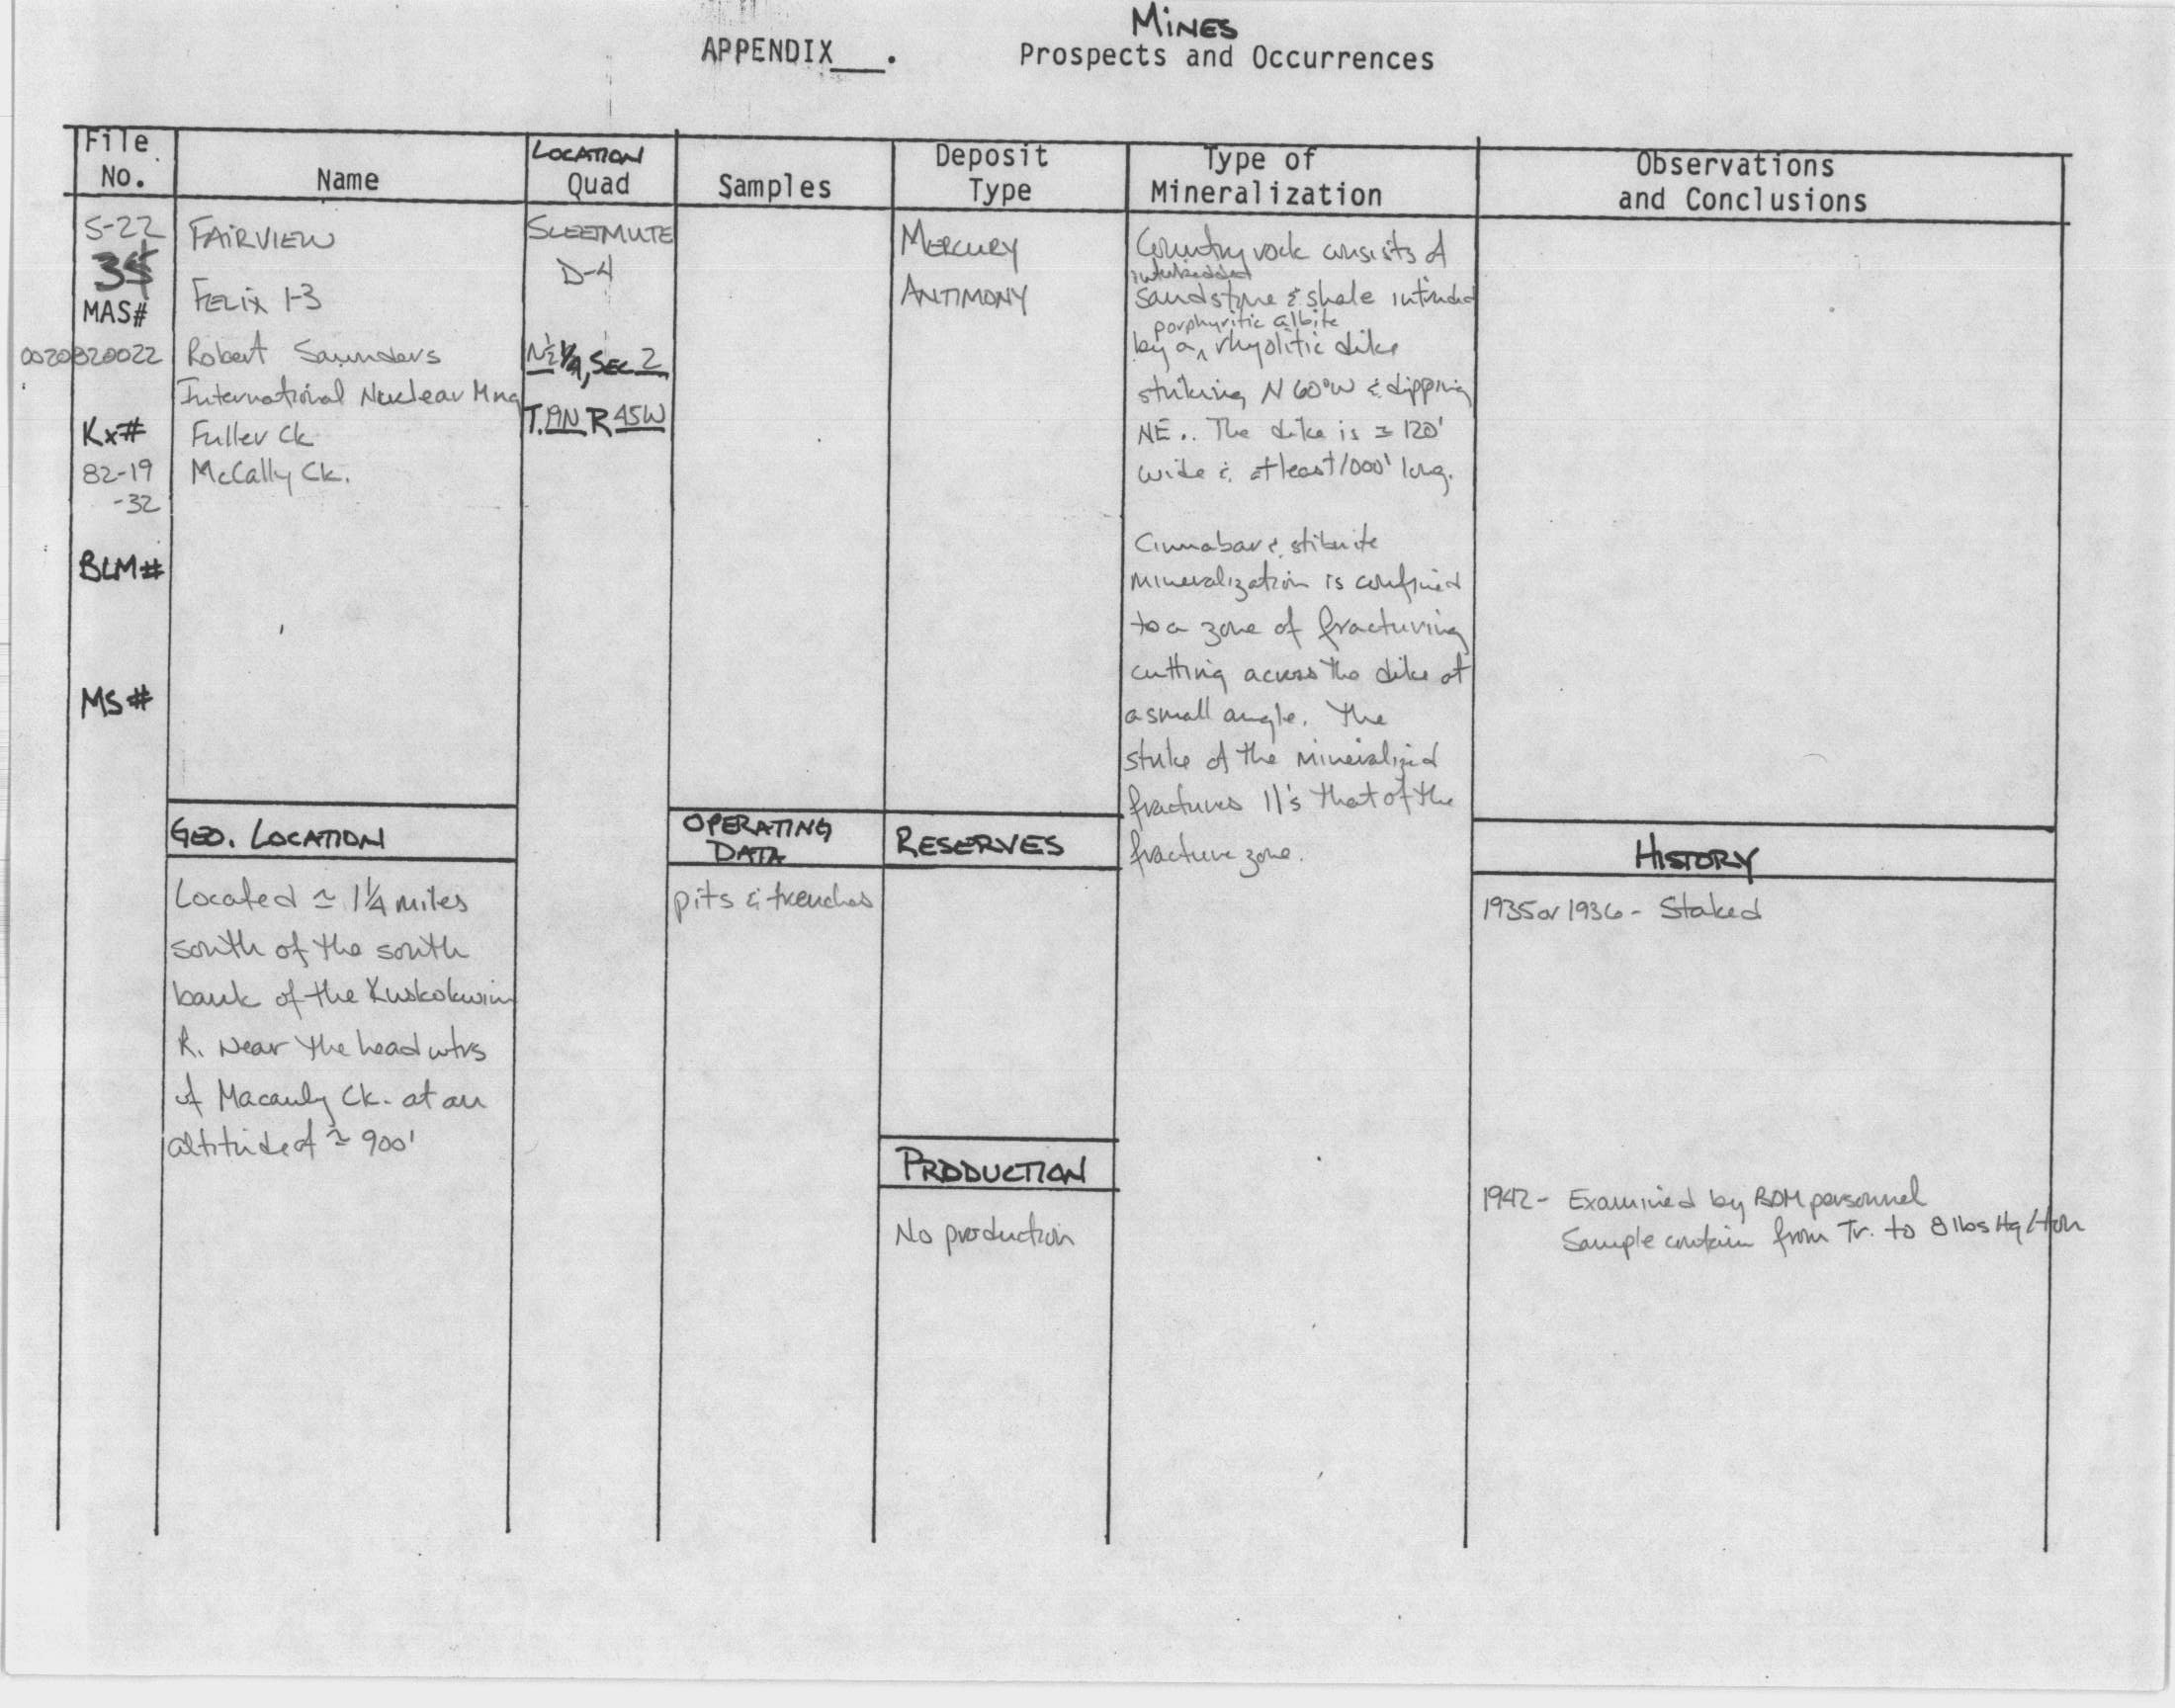 MINES
APPENDIX___. Prospects and Occurrences
File No.
Name
LOCATION Quad
Samples
Deposit Type
Type of Mineralization
Observations and Conclusions
S-22
MAS#
0020820022
Kx#
82-19
-32
BLM#
MS#
FAIRVIEW
FELIX 1-3
Robert Saunders
International Nuclear Mng
Fuller Ck
McCally Ck.
SLEETMUTE
D-4
N½ ¼, SEC 2
T.19N R 45W
MERCURY
ANTIMONY
Country rock consists of
interbedded
sandstone & shale intruded
porphyritic albite
by a ‸ rhyolitic dike
striking N 60°W & dipping
NE.. The dike is ≃ 120'
wide & at least 1000' long.
Cinnabar & stibnite
mineralization is confined
to a zone of fracturing
cutting across the dike at
a small angle. The
strike of the mineralized
fractures 11's that of the
fracture zone.
GEO. LOCATION
Located ≃ 1¼ miles
south of the south
bank of the Kuskokwim
R. Near the head wtrs
of Macauly Ck. at an
altitude of ≃ 900'
OPERATING
DATA
pits & trenches
RESERVES
PRODUCTION
No production
HISTORY
1935 or 1936 - Staked
1942 - Examined by BOM personnel
Sample contain from Tr. to 8 lbs Hg/ton